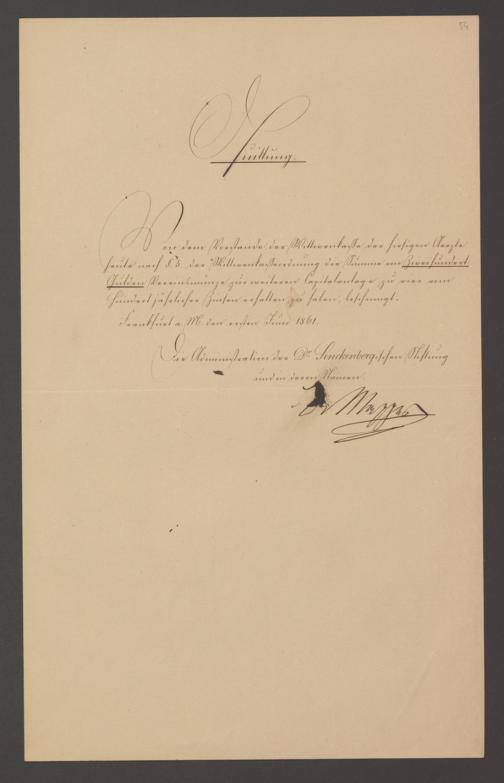 54
Quittung.
Von dem Vorstande der Wittwenkasse der hiesigen Aerzte
heute nach § 5 der Wittwenkasseordnung die Summe von Zweihundert
Gulden Vereinsmünze zur weiteren Capitalanlage zu vier vom
Hundert jährlicher Zinsen erhalten zu haben, bescheinigt.
Frankfurt a/M. den ersten Juni 1861.
Die Administration der Dr. Senckenberg'schen Stiftung
und in deren Namen:
Dr Mappes